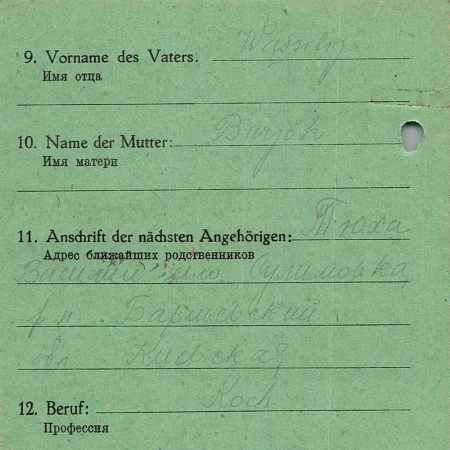 9. Vorname des Vaters. Wassilij
Имя отца
10. Name der Mutter: Burjök
Имя матери
11. Anschrift der nächsten Angehörigen: Тюха
Адрес ближайших родственников
Василий село
р н.
обл Киевская
12. Beruf: Koch
Профессия